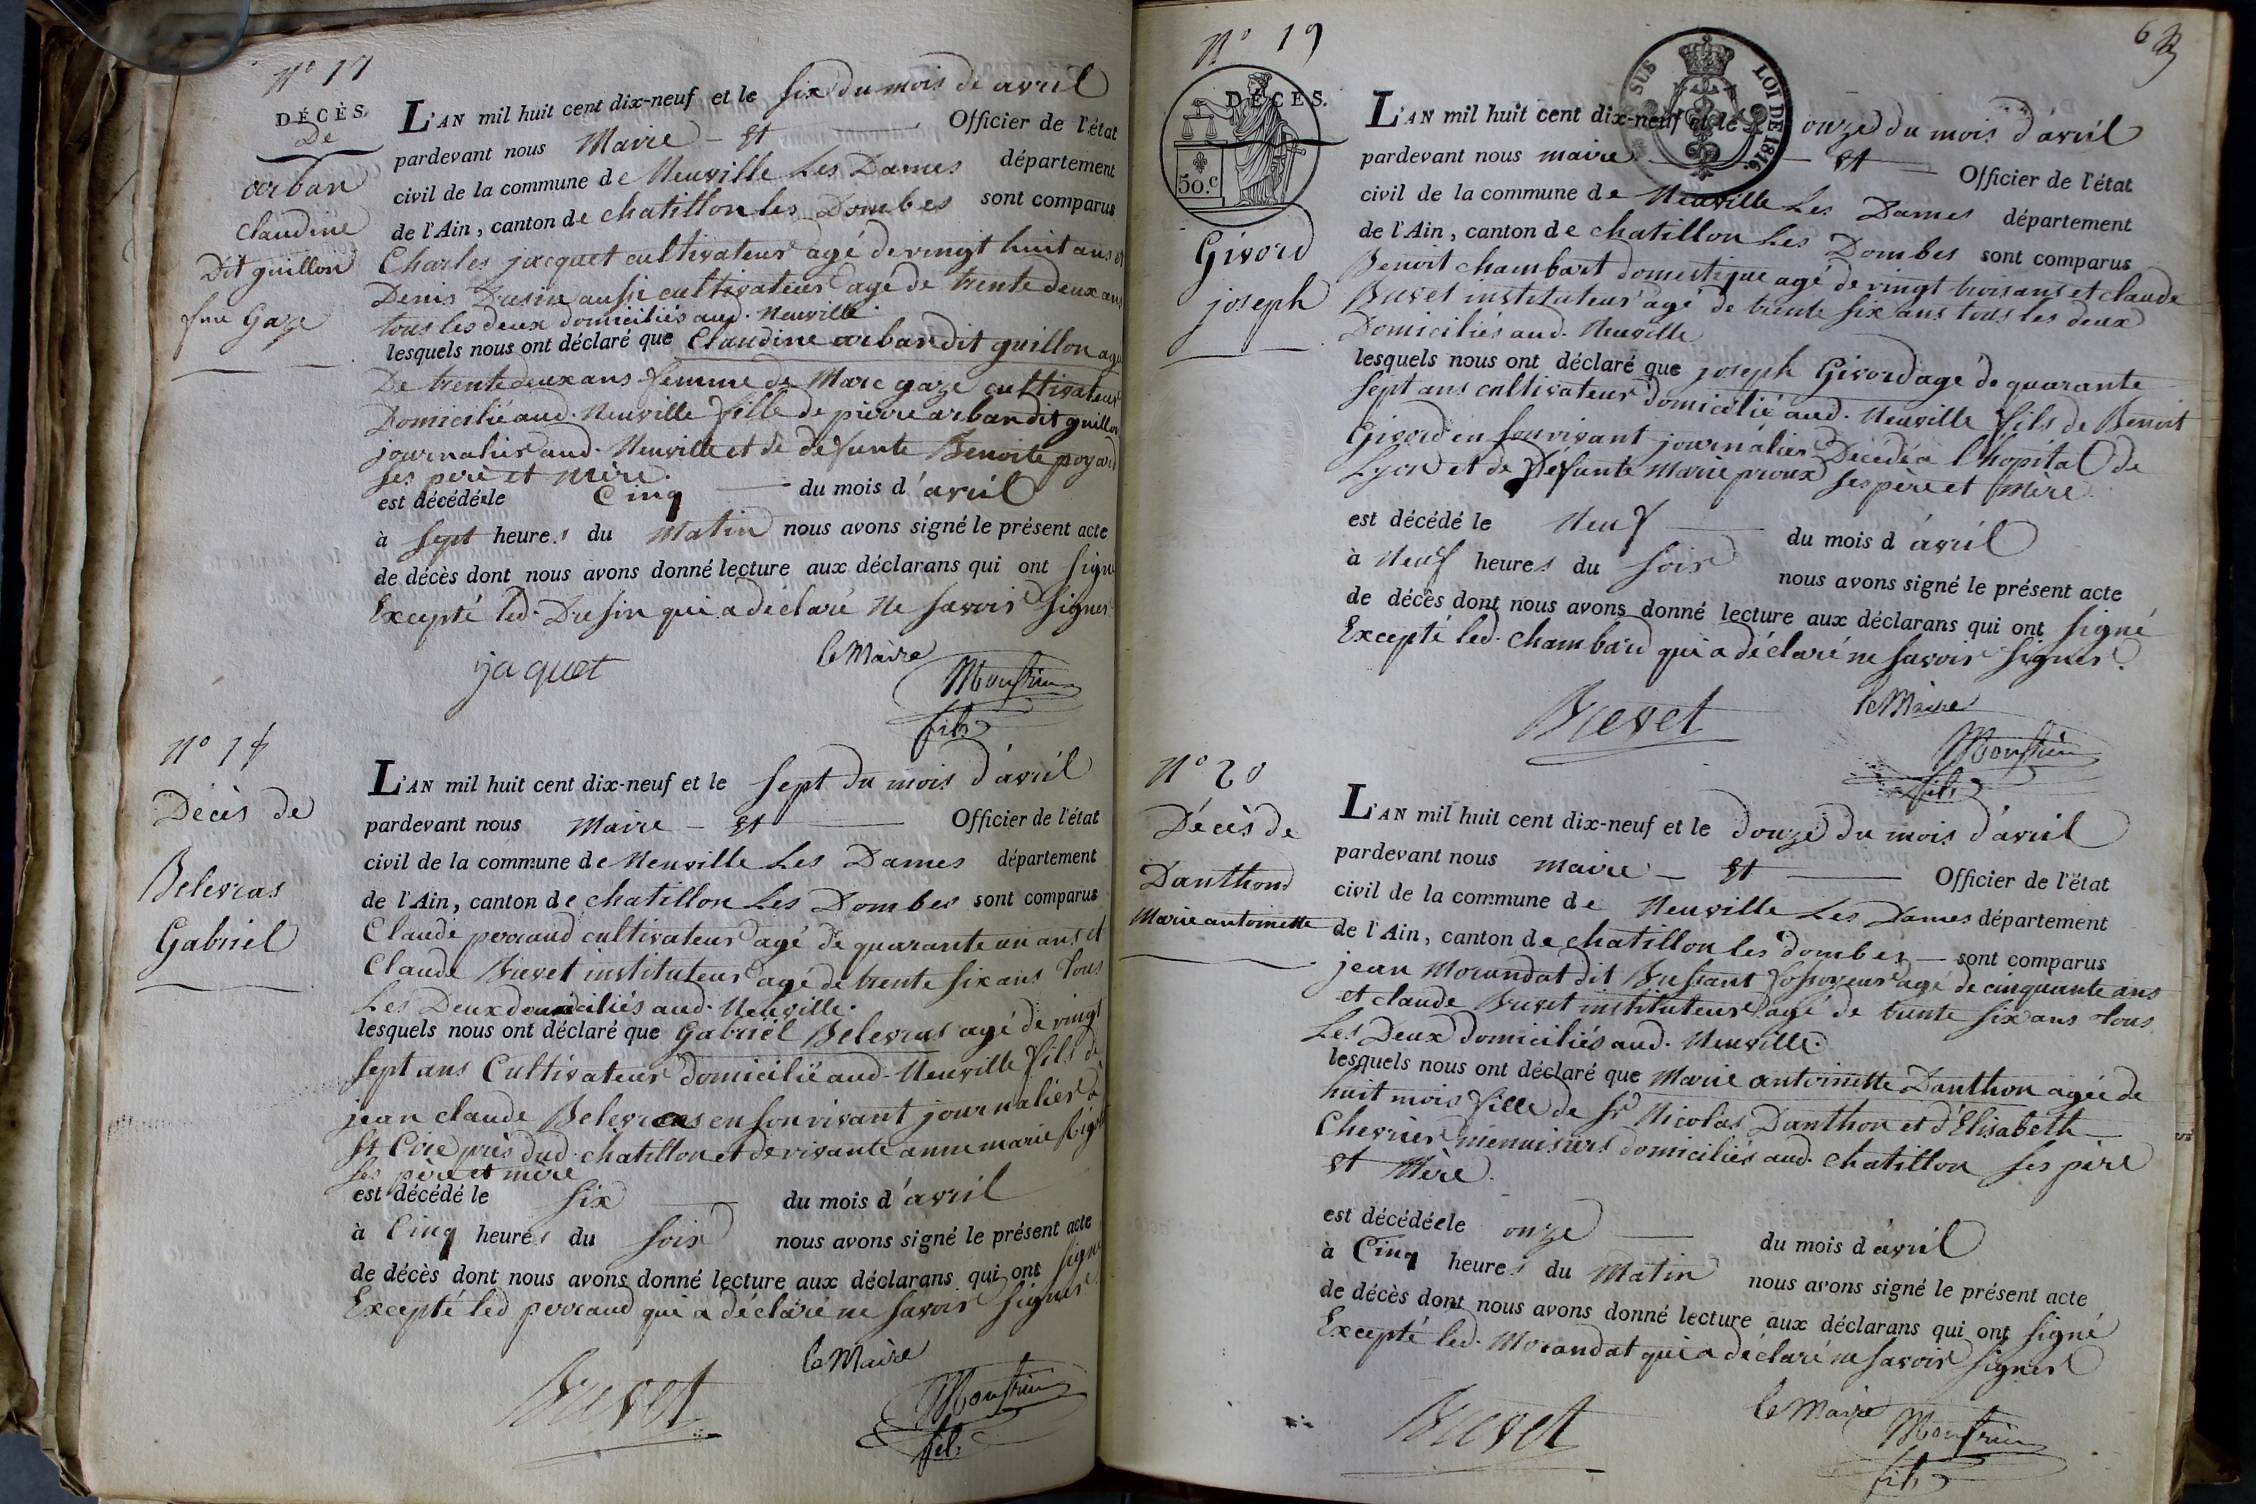 N° 17
DÉCÈS.
De
arban
Claudine
Dit guillon
fme Gaze
L'AN mil huit cent dix-neuf et le six du mois de avril
pardevant nous Maire - Et Officier de l'état
civil de la commune de Neuville Les Dames département
de l'Ain, canton de chatillon les Dombes sont comparus
Charles jacquet cultivateur agé de vingt huit ans et
Denis Dresin aussi cultivateur agé de trente deux ans
tous les deux domiciliés aud. Neuville
lesquels nous ont déclaré que Claudine arban dit guillon agée
De trente deux ans femme de Marc gaze cultivateur
Domicilié aud. Neuville fille de pierre arban dit guillon
journalier aud. Neuville et de defunte Benoite poyard
ses père et mère.
est décédée le Cinq du mois d'avril
à sept heures du Matin nous avons signé le présent acte
de décès dont nous avons donné lecture aux déclarans qui ont signé
Excepté led. Dresin qui a déclaré ne savoir signer
jaquet
le Maire
Monfrin
fils
N° 18
Décès de
Belevras
Gabriel
L'AN mil huit cent dix-neuf et le sept du mois d'avril
pardevant nous Maire - Et Officier de l'état
civil de la commune de Neuville Les Dames département
de l'Ain, canton de chatillon Les Dombes sont comparus
Claude perraud cultivateur agé de quarante un ans et
Claude Buvet instituteur agé de trente six ans Tous
Les Deux domiciliés aud. Neuville.
lesquels nous ont déclaré que Gabriel Belevras agé de vingt
sept ans Cultivateur domicilié aud. Neuville fils de
jean claude Belevras en son vivant journalier à
St Cire près dud. chatillon et de vivante anne marie
ses père et mère
est décédé le six du mois d'avril
à Cinq heures du soir nous avons signé le présent acte
de décès dont nous avons donné lecture aux déclarans qui ont signé
Excepté led perraud qui a déclaré ne savoir signer
Buvet
le Maire
Monfrin
fils
N° 19
6
DÉCÈS.
50.c
SUR LOI DE 1816.
Givord
joseph
L'AN mil huit cent dix-neuf et le onze du mois d'avril
pardevant nous maire Et Officier de l'état
civil de la commune de Neuville Les Dames département
de l'Ain, canton de chatillon Les Dombes sont comparus
Benoit chambart domestique agé de vingt trois ans et claude
Buvet instituteur agé de trente six ans tous les deux
Domiciliés aud. Neuville
lesquels nous ont déclaré que joseph Givord agé de quarante
sept ans cultivateur domicilié aud. Neuville fils de Benoit
Givord en son vivant journalier Décédé à l'hopital de
Lyon et de Défunte Marie proux ses père et mère.
est décédé le Neuf du mois d'avril
à Neuf heures du soir nous avons signé le présent acte
de décès dont nous avons donné lecture aux déclarans qui ont signé
Excepté led. chambard qui a déclaré ne savoir signer.
Buvet
le Maire
Monfrin
fils
N° 20
Décès de
Danthond
Marie antoinette
L'AN mil huit cent dix-neuf et le douze du mois d'avril
pardevant nous maire - Et Officier de l'état
civil de la commune de Neuville Les Dames département
de l'Ain, canton de chatillon les dombes sont comparus
jean Morandat dit Bressant fossoyeur agé de cinquante ans
et claude Buvet instituteur agé de trente six ans tous
Les Deux domiciliés aud. Neuville.
lesquels nous ont déclaré que Marie antoinette Danthon agée de
huit mois fille de Sr Nicolas Danthon et d'Elisabeth
Chevrier menuisiers domiciliés aud. chatillon ses père
et Mère.
est décédée le onze du mois d'avril
à Cinq heures du Matin nous avons signé le présent acte
de décès dont nous avons donné lecture aux déclarans qui ont signé
Excepté led. Morandat qui a déclaré ne savoir signer
Buvet
le Maire
Monfrin
fils